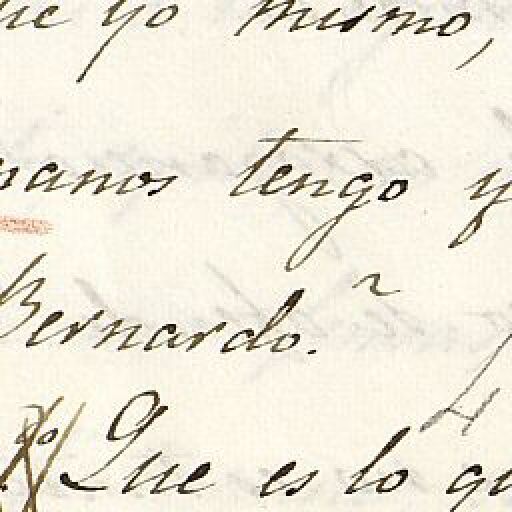 ue yo mismo,
manos tengo y
Bernardo. ~
4
go Que es lo qu